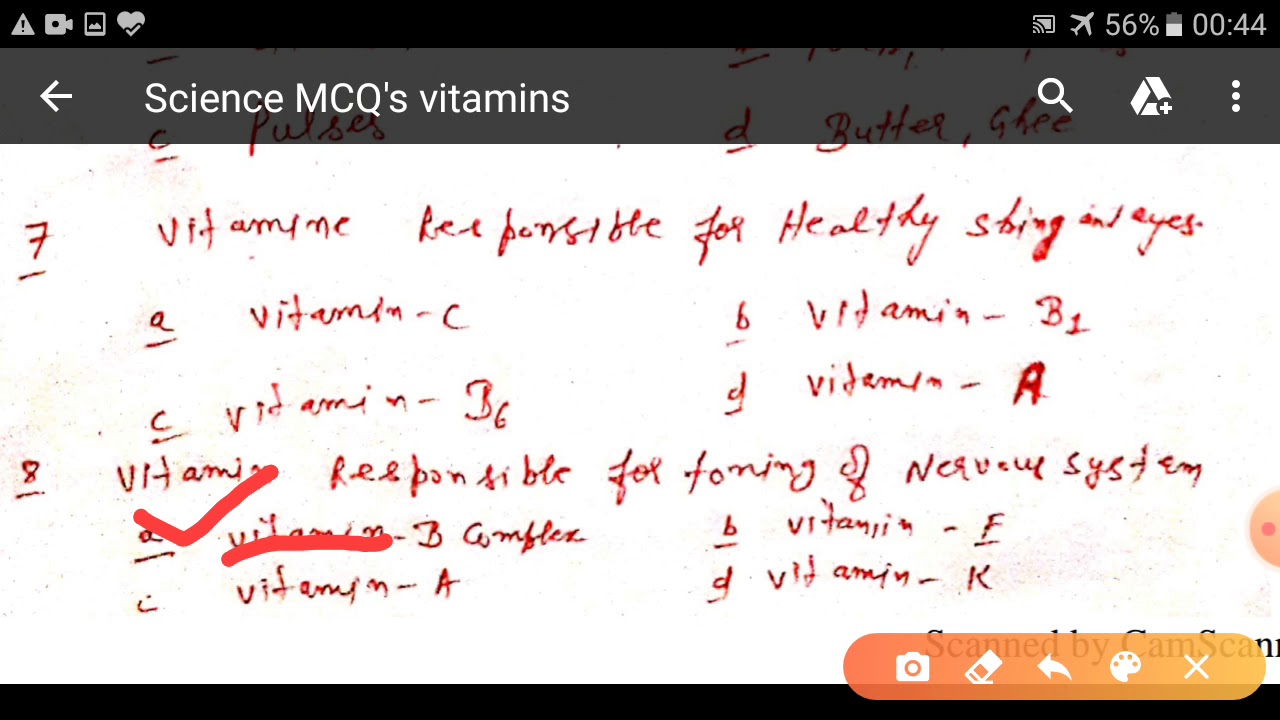 56% 00:44
Science MCQ's vitamins
c Pulses d Butter, Ghee
7 Vitamine Responsible for Healthy and eyes.
a vitamin - C b vitamin - B1
c vitamin - B6 d vitamin - A
8 Vitamin Responsible for toning of Nervous system
a vitamin - B Complex b vitamin - E
c vitamin - A d vitamin - K
Scanned by CamScann